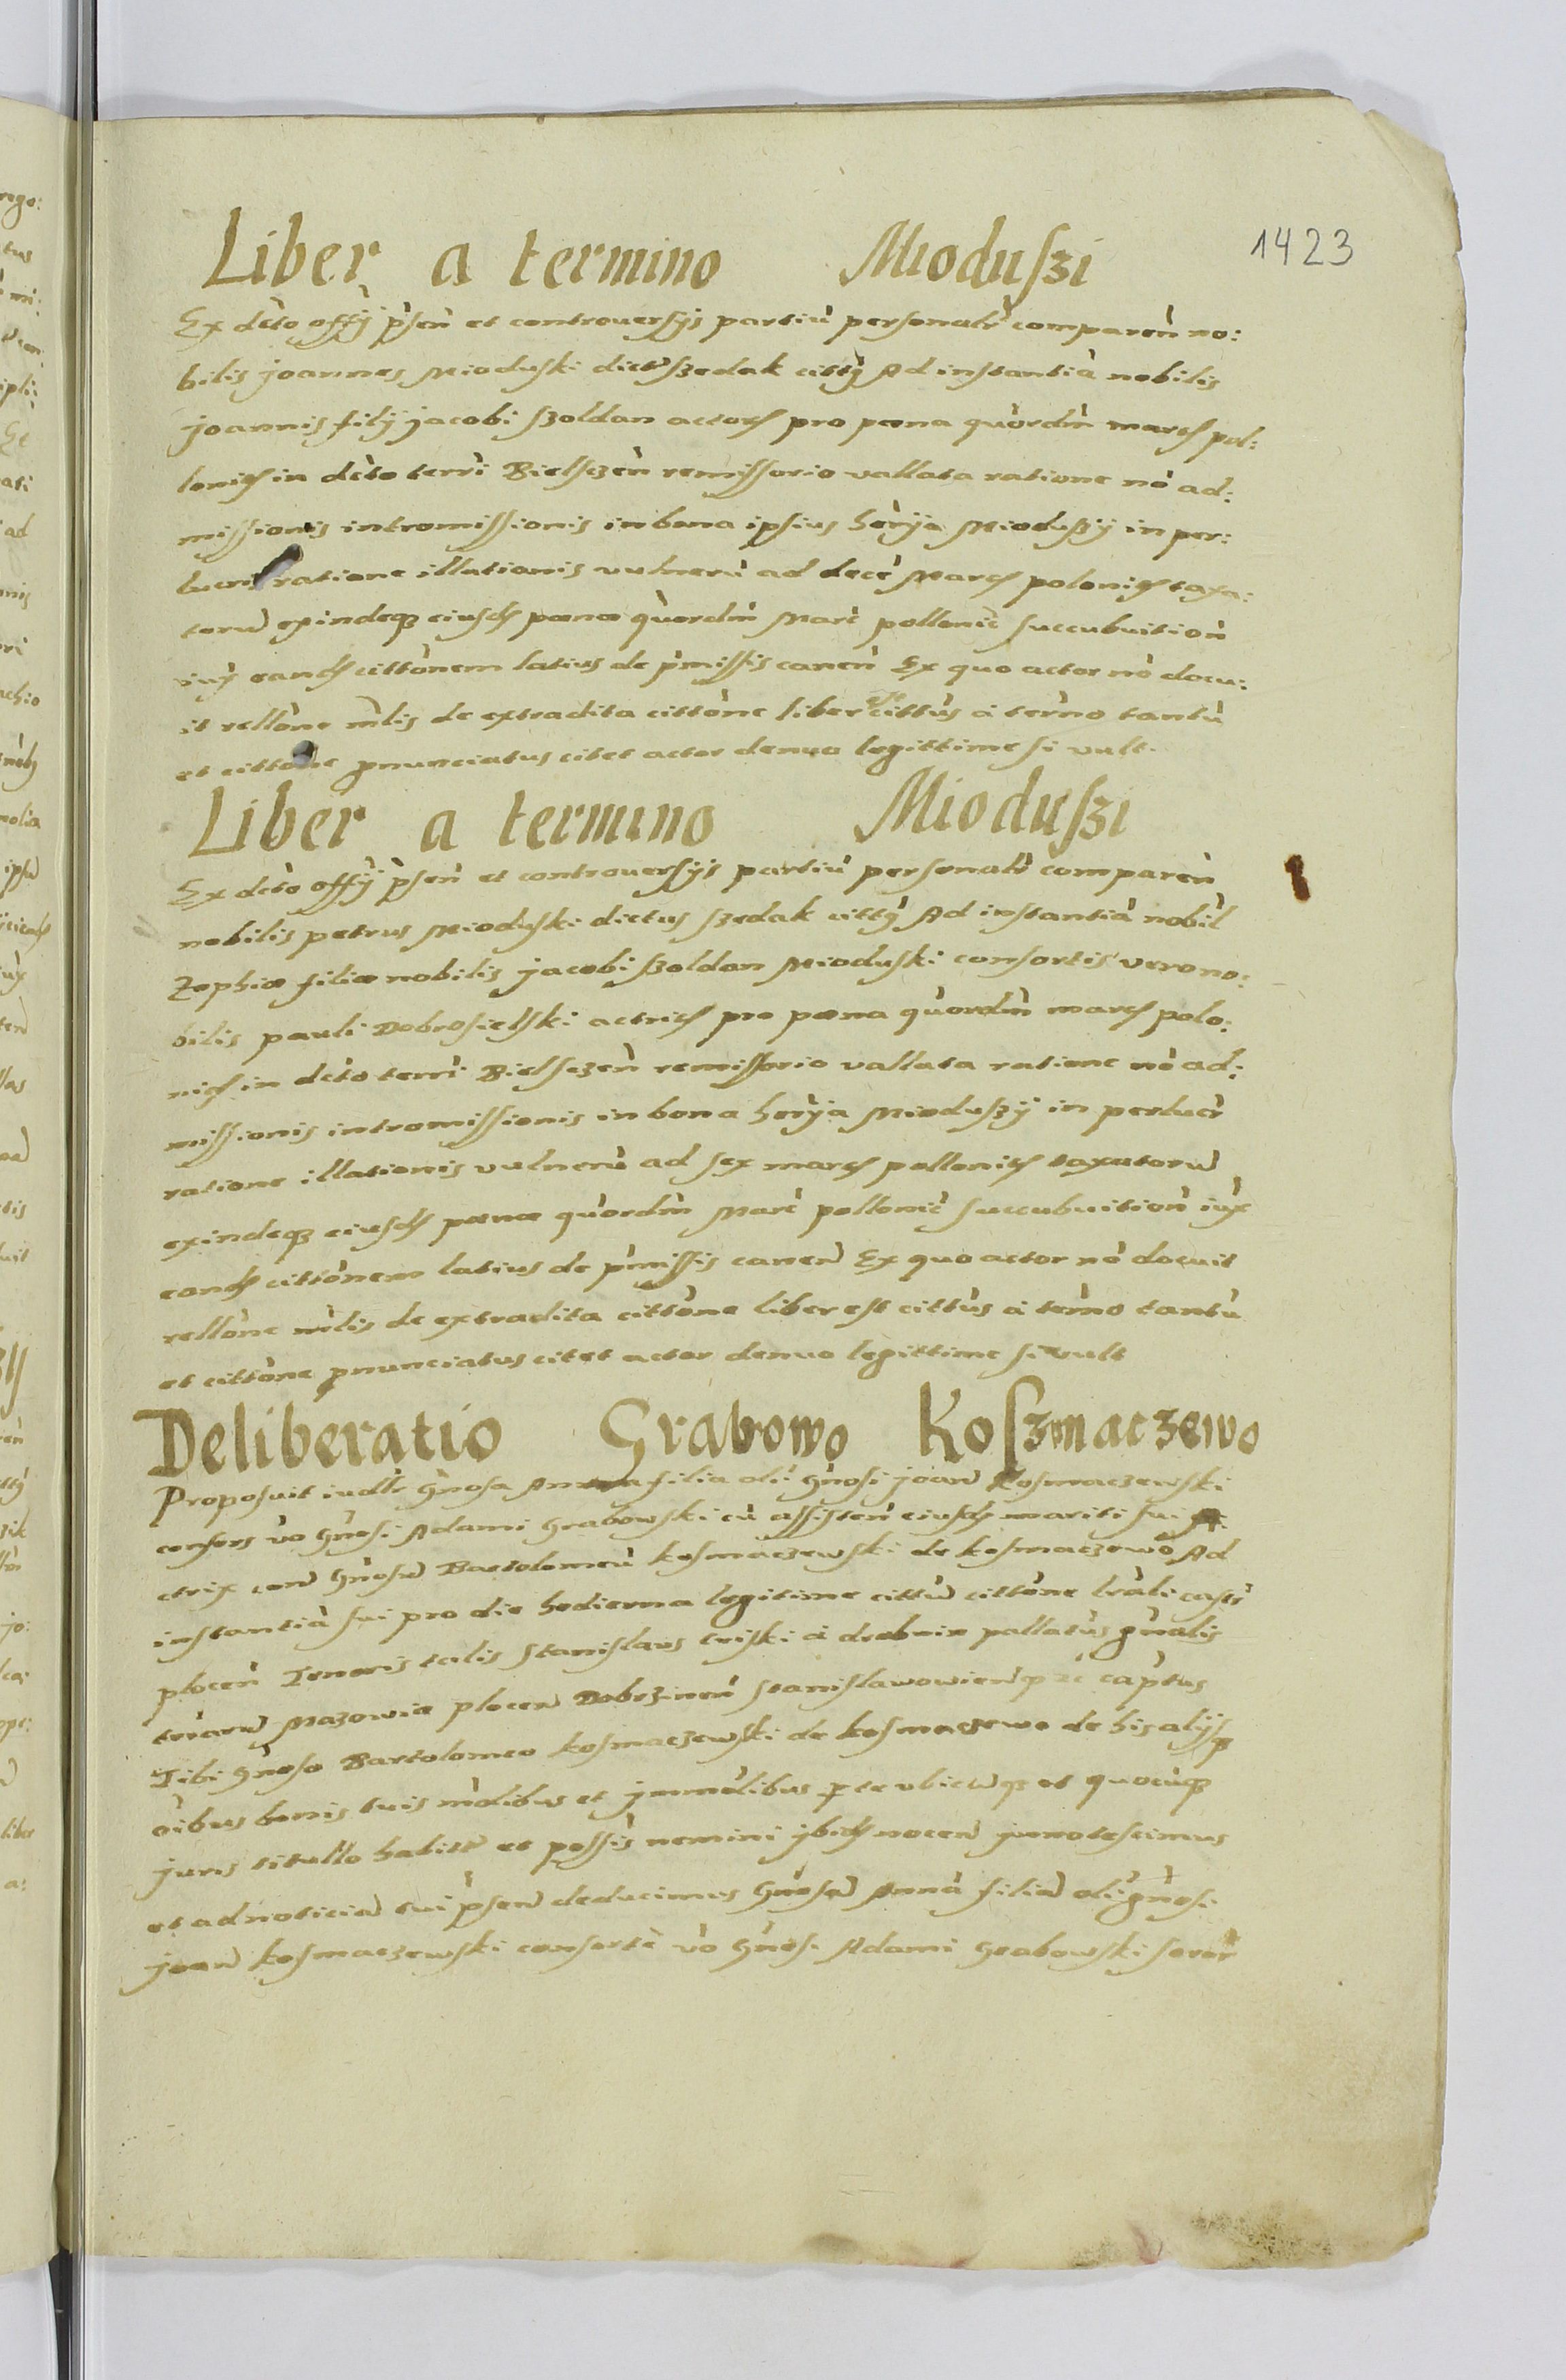 1423
Liber a termino Mioduſzi
Ex dcto offÿ pñſen̄ et controuerſijs partiū perſonalr̄ comparen̄ no:
bilis joannes Mioduſki dictꝰ ſzedak citt9 Ad inſtantiā nobilis
joannis filÿ jacobi ſzoldan actorꝭ pro pœna quordm̄ marcꝭ pol:
loniꝭ in dcto terri Bielſczen̄ remiſſorio vallata ratione nō ad:
miſſionis intromiſſionis in bona ipſius herÿa Mioduſzÿ in per:
lucris ratione illationis vulnerū ad decē Marcꝭ poloniꝭ taxa:
torū exindeqꝫ eiuſdꝭ pœnæ quordm̄ Marc̄ pollonic̄ ſuccubuition̄
iux eandꝭ cittōnem latius de p̄miſſis canen̄ Ex quo actor nō docu:
it rellōne m̄lis de extradita cittōne liber eſt cittūs á term̄o tantū
et cittōne pnunciatus citet actor denuo legittime ſi vult.
Liber a termino Mioduſzi
Ex dcto offÿ pñſen̄ et controuerſijs partiū perſonalr̄ comparen̄
nobilis petrus Mioduſki dictus ſzedak citt9 Ad inſtantiā nobil
Zophiæ filiæ nobilis jacobi ſzoldan Mioduſki conſortis vero no:
bilis pauli Dobroſielſki actricꝭ pro pœna quordm̄ marcꝭ polo:
niꝭ in dcto terri Bielſczen̄ remiſſorio vallata ratione nō ad:
miſſionis intromiſſionis in bona herÿa Mioduſzÿ in perlucr̄
ratione illationis vulnerū ad ſex marcꝭ polloniꝭ taxatorū
exindeqꝫ eiuſdꝭ pœnæ quordm̄ Marc̄ pollonic̄ ſuccubuition̄ iux
eandꝭ cittōnem latius de p̄miſſis canen̄ Ex quo actor nō docuit
rellōne m̄lis de extradita cittōne liber eſt cittūs á term̄o tantū
et cittōne pnunciatus citet actor denuo legittime ſi vult
Deliberatio Grabowo Koſzmaczewo
Propoſuit iudlr̄ Gn̄oſa Anna filia oli Gn̄oſi joan̄ Koſmaczewſki
conſors vo Gn̄oſi Adami Grabowſki cū aſſiſten̄ eiuſdꝭ mariti ſui A:
ctrix con̄ Gn̄oſū Bartolomeū koſmaczewſki de koſmaczewo Ad
inſtantiā ſui pro die hodierna legitime cittū cittōne lr̄ali caſtr̄
plocen̄ Tenoris talis Stanislaus criſki á drobnin pallatūs gn̄alis
trr̄arū Mazowiæ plocen̄ Dobrzinen̄ ſtaniſlawowien̄ captus
Tibi Gn̄oſo Bartolomeo koſmaczewſki de koſmaczewo de his alÿſqꝫ
oībus bonis tuis m̄dibus et jmmōlibus p te vbicūqꝫ et quocūqꝫ
juris titullo habitꝭ et poſſis nemini jbidꝭ nocen̄ jnnoteſcimus
et ad noticiā tui pſen̄ deducimus Gn̄oſā Annā filiā oli gn̄oſi
joan̄ koſmaczewſki conſortē vo Gn̄oſi Adami Grabowſki ſoror